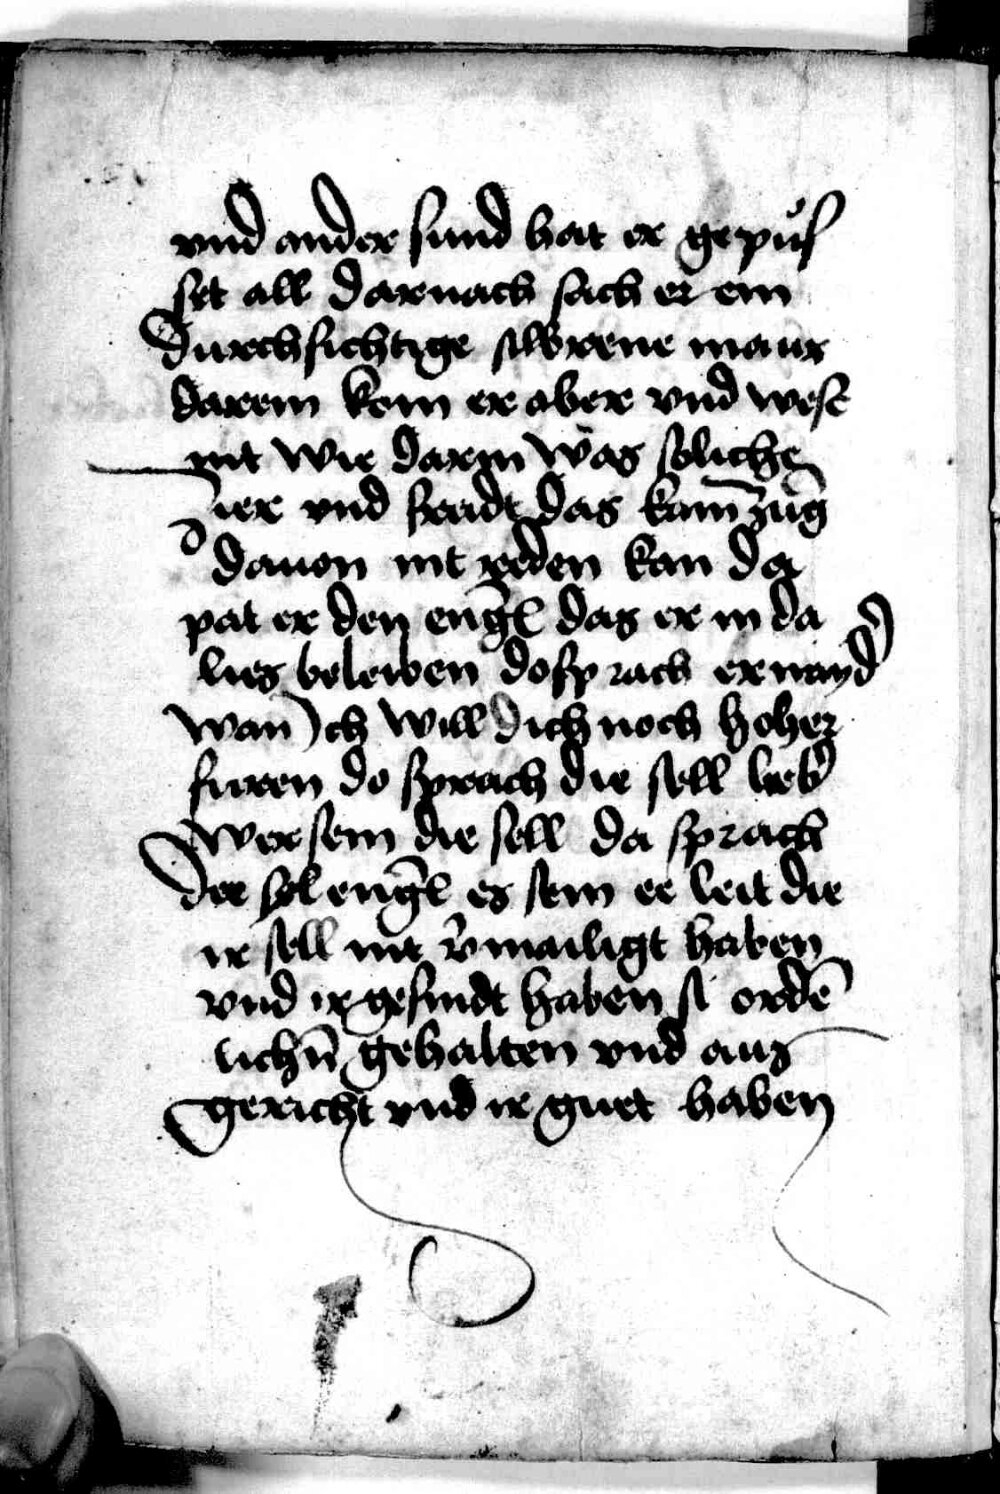 vnd ander sund hat er gepůs
set all Darnach sach er ein
durchsichtige silbrene maur
darein kom er aber vnd west
nit wie darin was soliche
zier vnd freidt das kain zūg
dauon nit reden kan da
pat er den engl das er in da
lies beleiben do sprach er nayn
wan Jch will dich noch hoher
furen do sprach die sell lieb̄
wer sein die sell da sprach
Der hl engl es sein ee leit die
ir sell nit v̄mailigt haben
vnd ir gesindt haben si ordē
lichn̄ gehalten vnd aus
gericht vnd ir guet haben